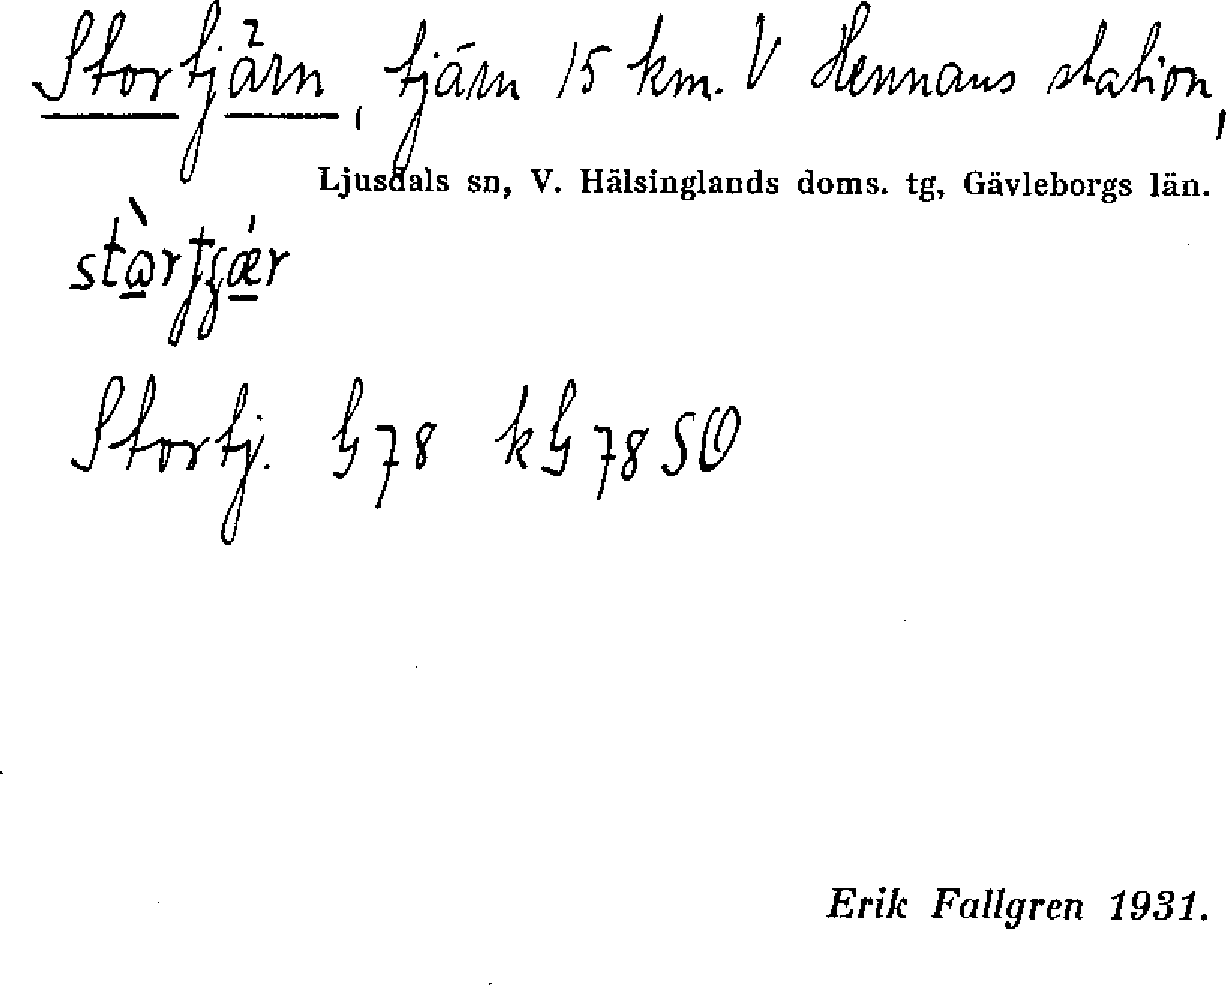 Stortjärn, tjärn 15 km. V Hennans station,
Ljusdals sn, V. Hälsinglands doms. tg, Gävleborgs län.
Stortj. G78 kG 78 SO
Erik Fallgren 1931.